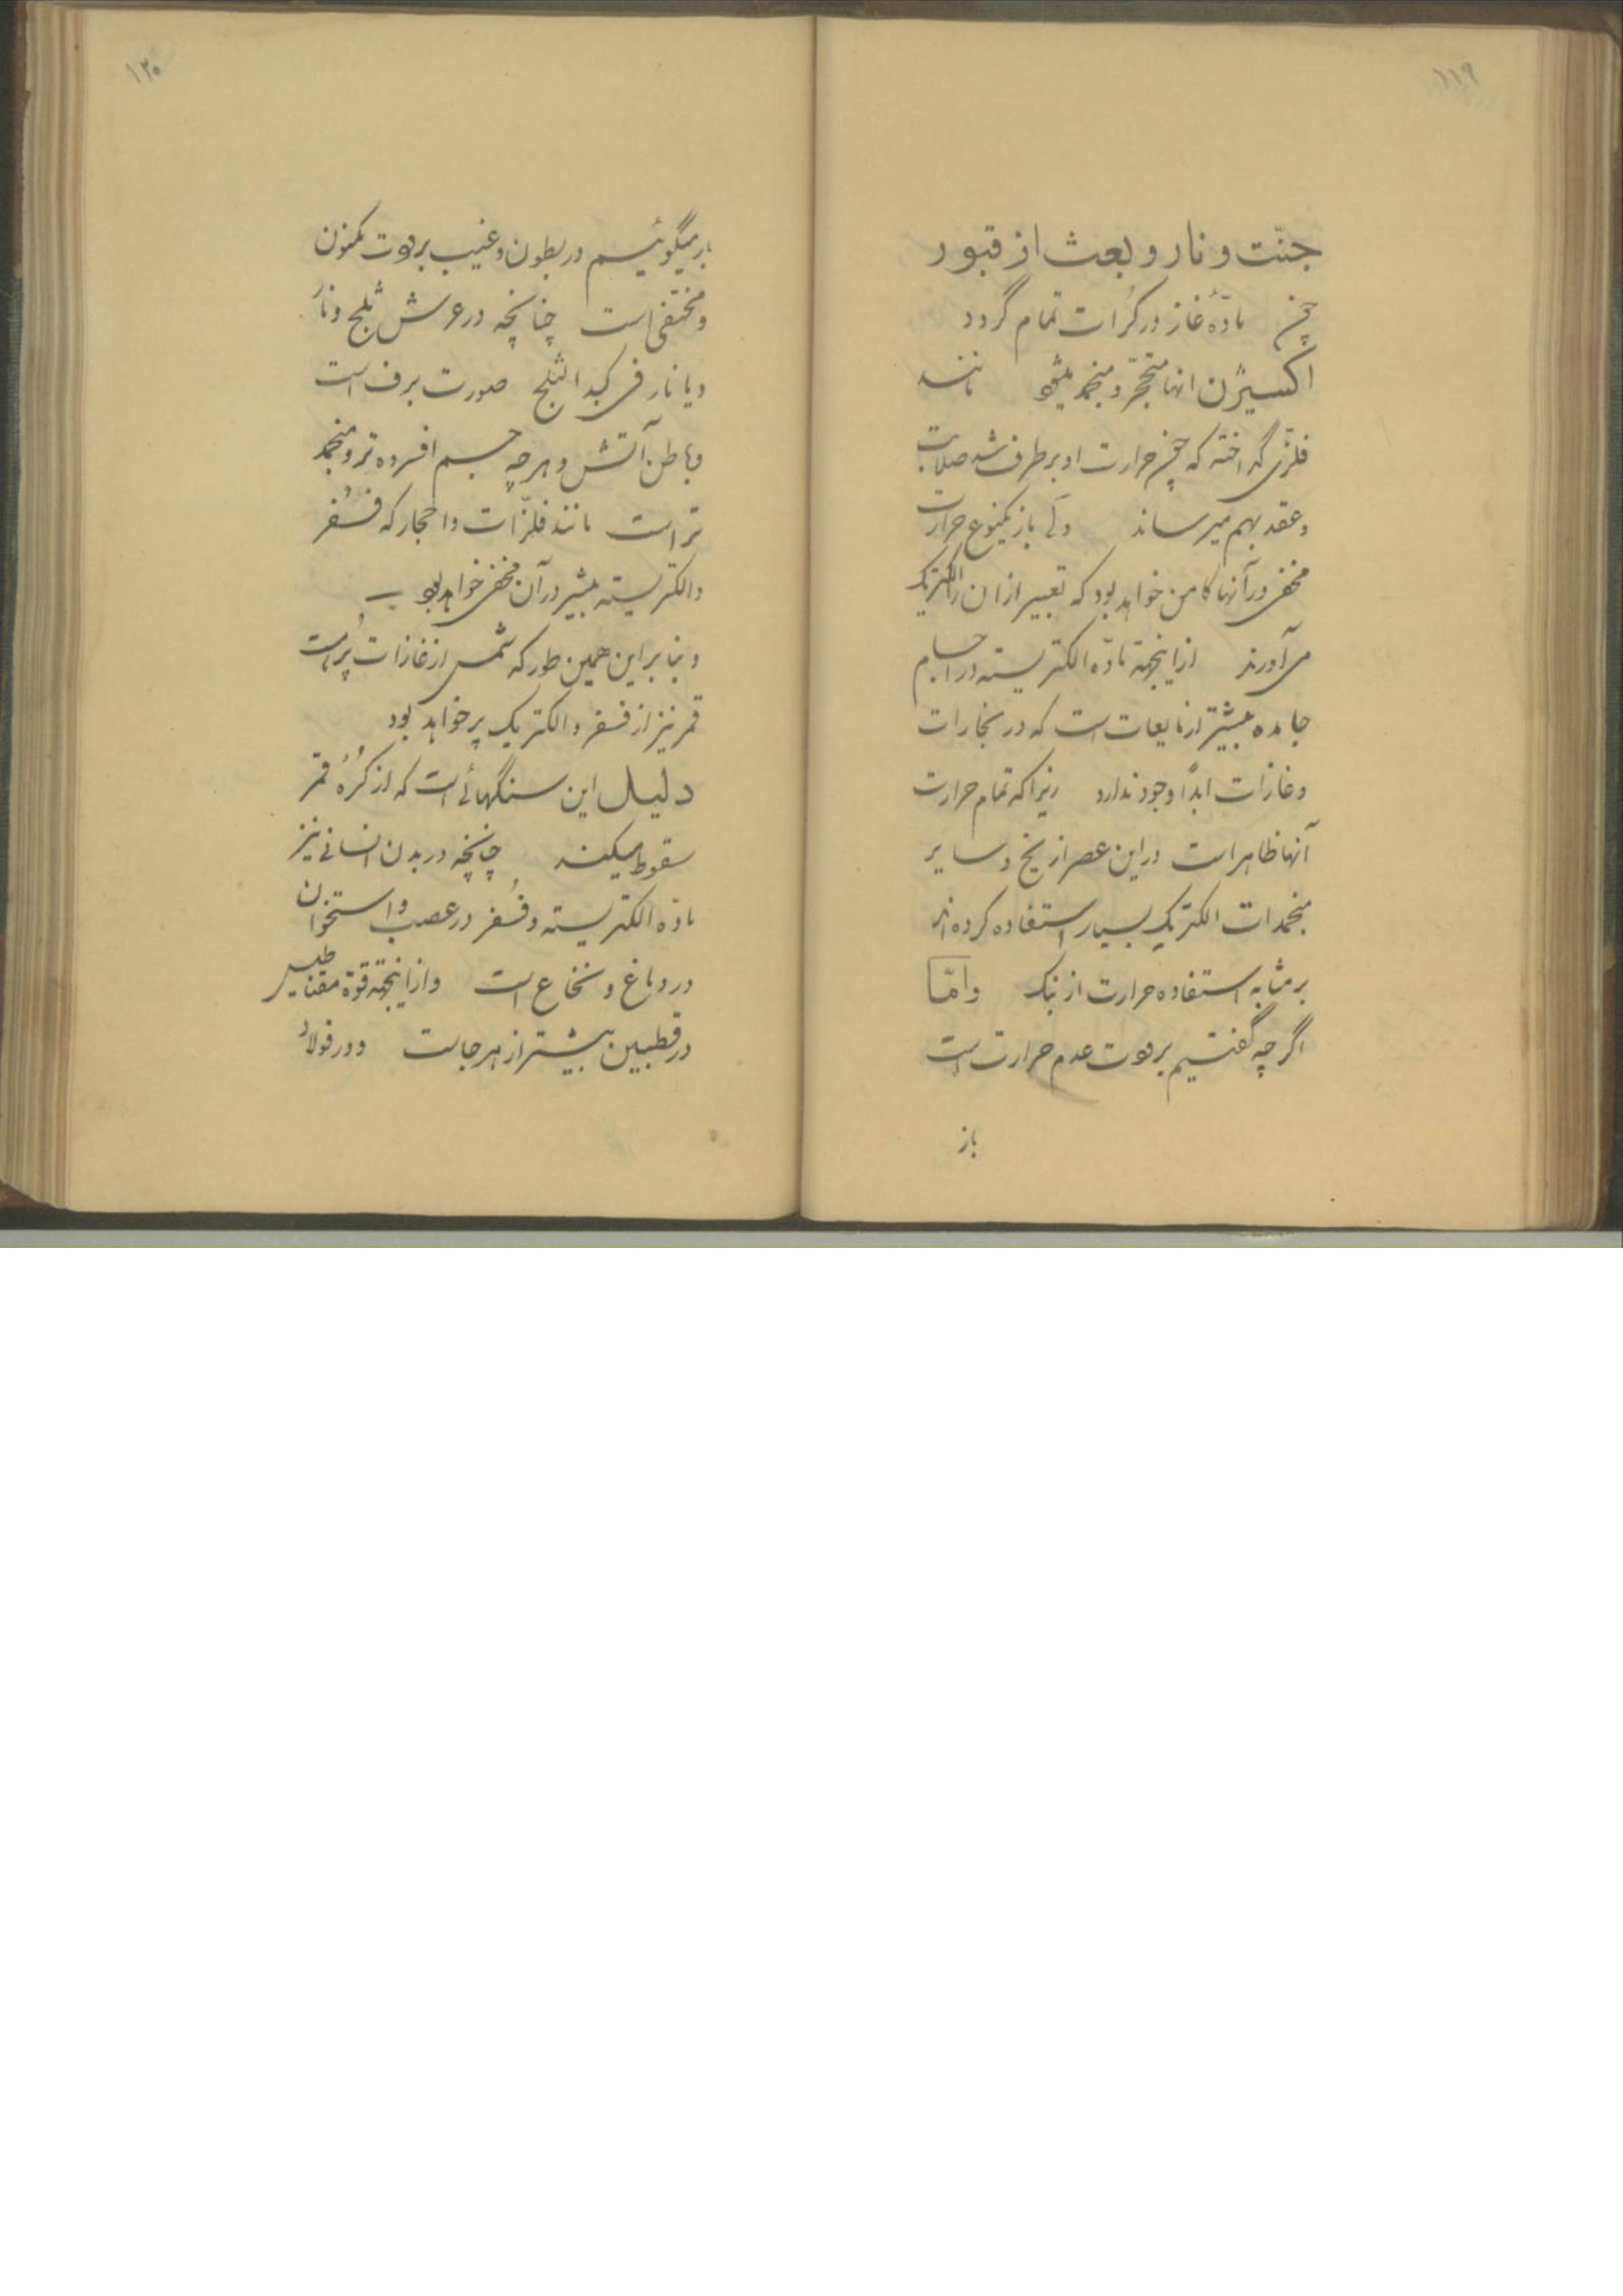 ۱۱۹
جنّت و نار و بعث از قبور
چون مادّهٔ غاز در کرات تمام گردد
اکسیژن انها متحجّر و منجمد میشود مانند
فلزّی گداخته که چون حرارت او برطرف شد صلابت
و عقد بهم میرساند ولی باز یکنوع حرارت
مخفی در آنها کامن خواهد بود که تعبیر از ان بالکتریک
می‌آورند ازاینجهة مادّه الکتریسته در اجسام
جامده بیشتر از مایعات است که در بخارات
و غازات ابداً وجود ندارد زیرا که تمام حرارت
آنها ظاهر است در این عصر از یخ و سایر
منجمدات الکتریک بسیار استفاده کرده‌اند
بر مثابه استفاده حرارت از نمک و امّا
اگرچه گفتیم برودت عدم حرارت است
باز
۱۲۰
باز میگوئیم در بطون و غیب برودت مکنون
و مختفی است چنانچه در عرش ثلج و نار
و یا نار فی کبد الثلج صورت برف است
و باطن آتش و هر چه جسم افسرده تر و منجمد
تر است مانند فلزّات و احجار که فُسفر
و الکتریسته بیشتر در آن مخفی خواهد بود
و بنا بر این همین طور که شمس از غازات پُر است
قمر نیز از فسفر و الکتریک پر خواهد بود
دلیل این سنگهائی است که از کُرهٔ قمر
سقوط میکند چنانچه در بدن انسانی نیز
مادّه الکتریسته و فُسفر در عصب و استخوان
در دماغ و نخاع است و ازاینجهة قوّة مقناطیس
در قطبین بیشتر از هر جاست و در فولاد